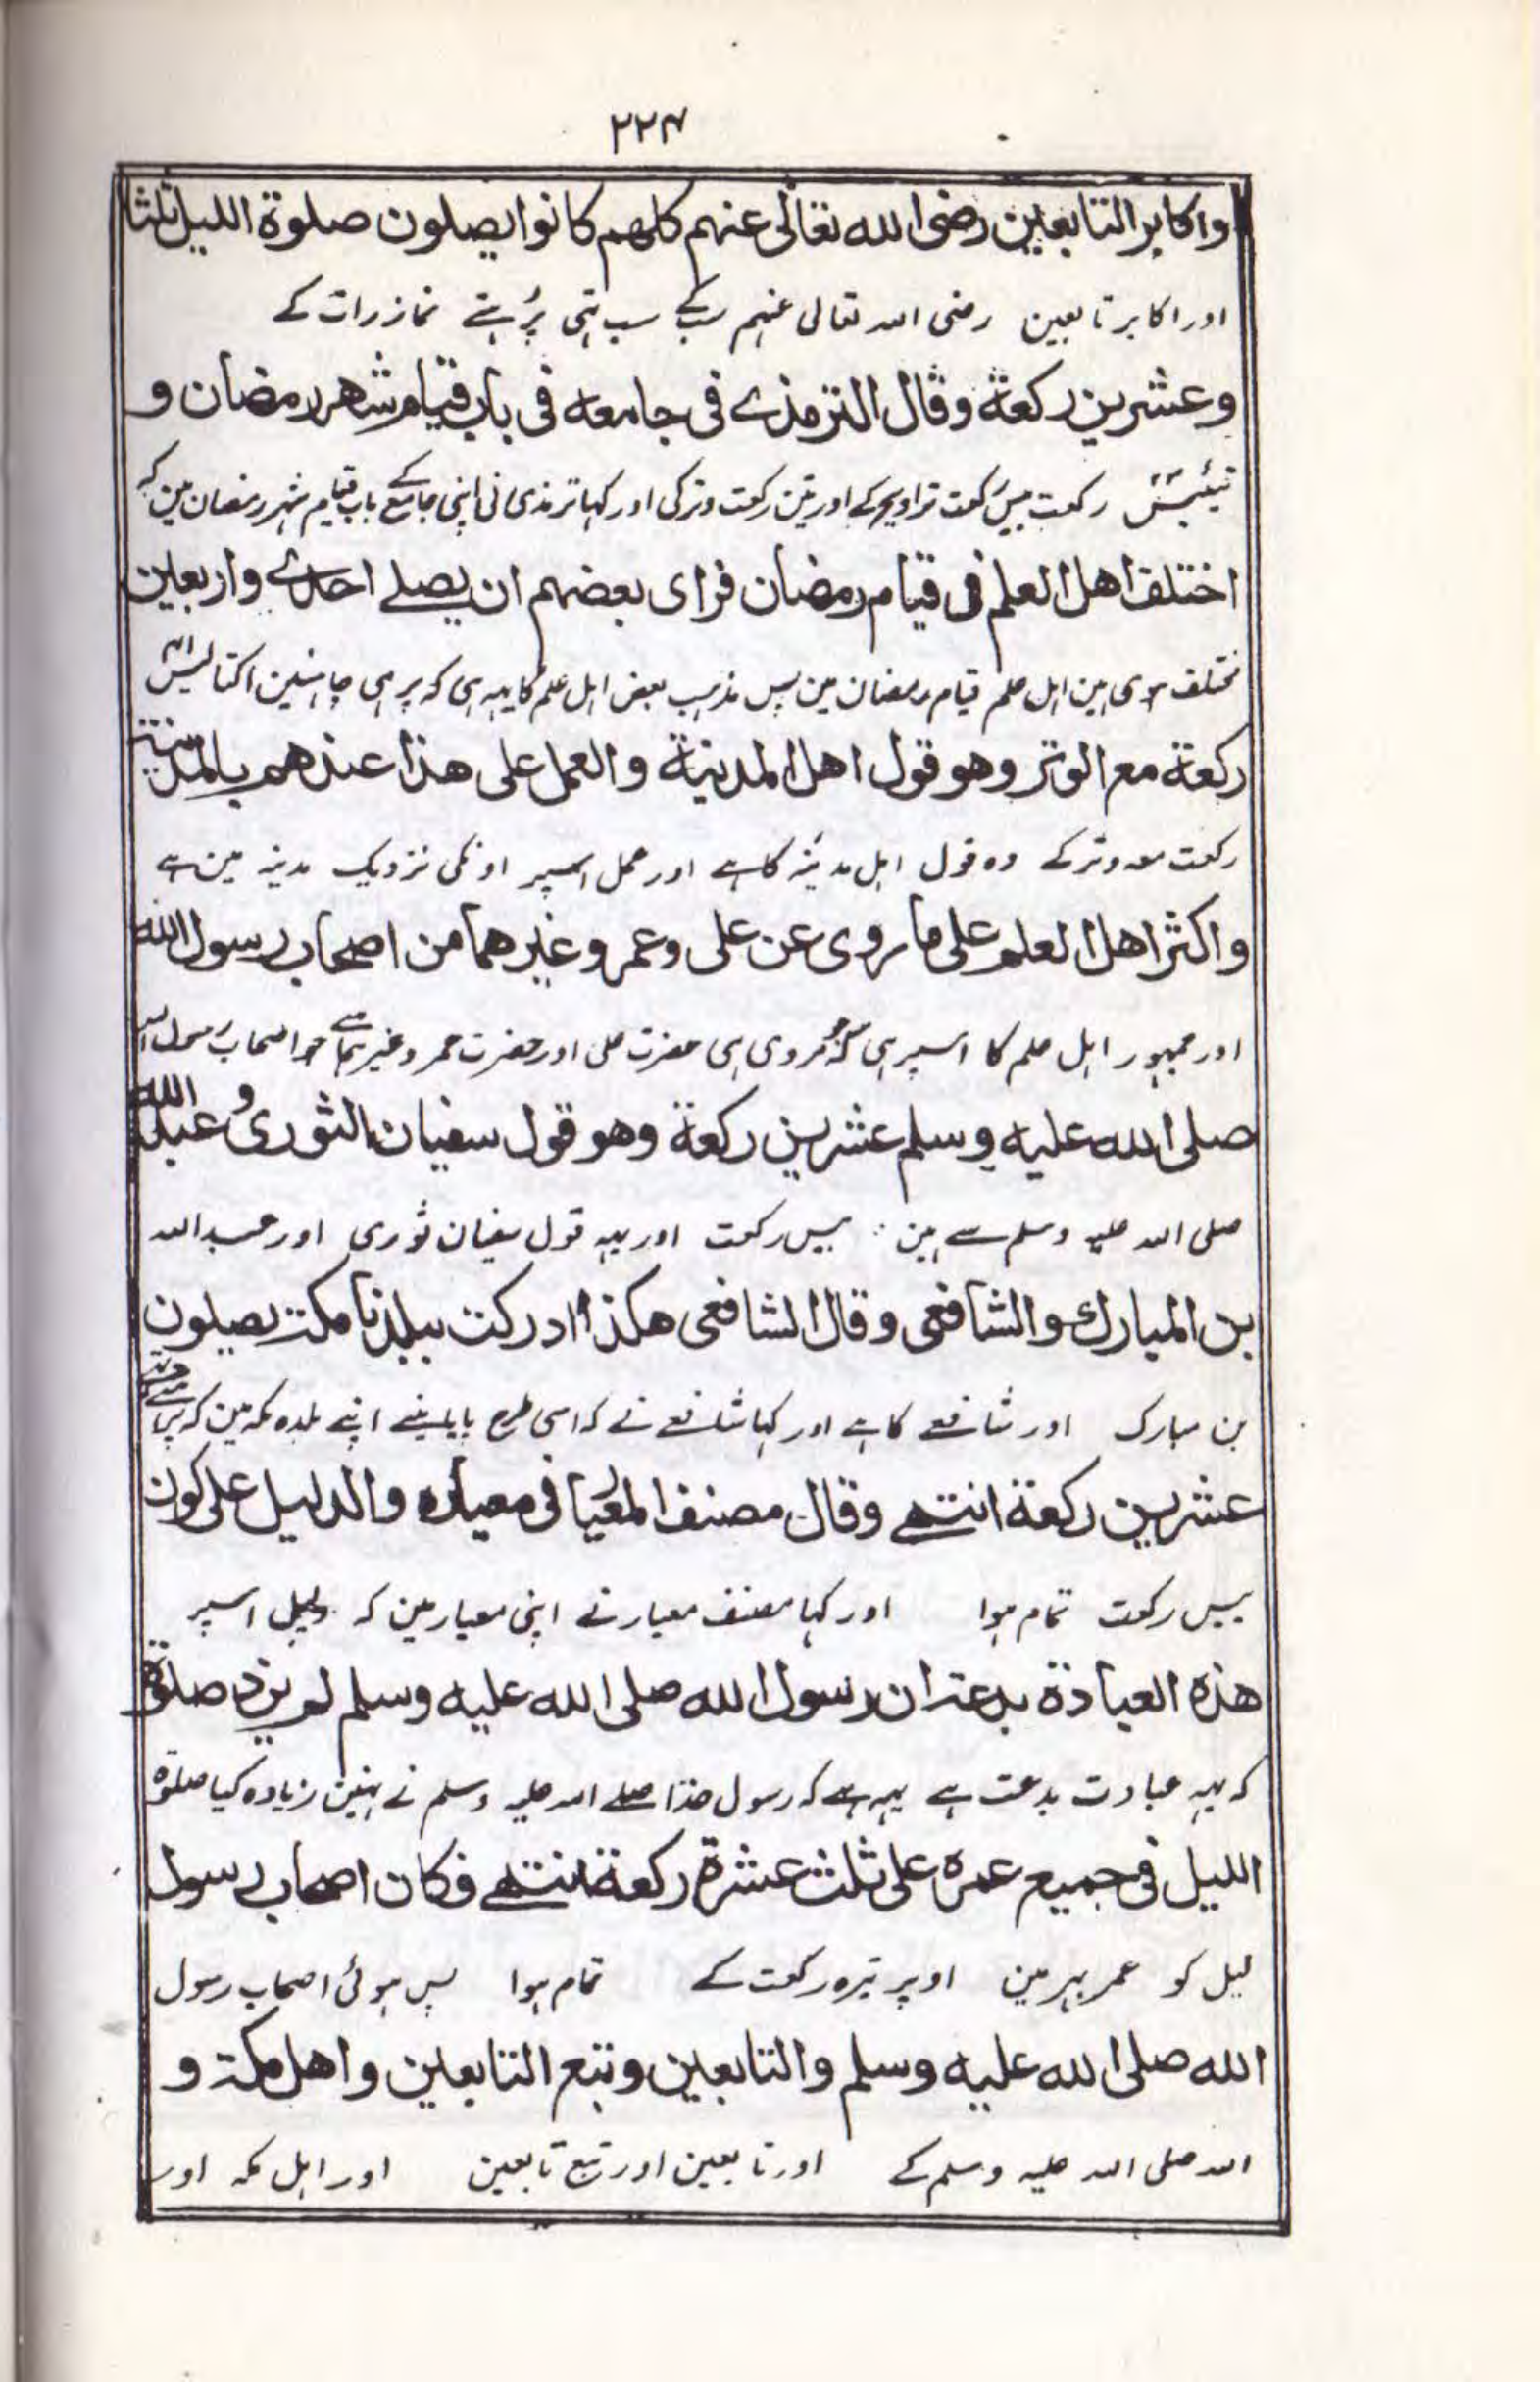 ٢٢٤
واکابر التابعین رضی الله تعالی عنہم کلہم کانوا یصلون صلوة اللیل ثلثا
اور اکابر تابعین رضی اللہ تعالی عنہم سب کے سب تہی پڑہتے نماز رات کے
وعشرین رکعة وقال الترمذے فی جامعه فی باب قیام شهر رمضان و
تیئیس رکعت بیس رکعت تراویح کے اور تین رکعت وتر کی اور کہا ترمذی نی اپنی جامع کے باب قیام شہر رمضان مین کہ
اختلف اهل العلم فی قیام رمضان فرای بعضہم ان یصلے احدے واربعین
مختلف ہوی ہین اہل علم قیام رمضان مین پس مذہب بعض اہل علم کا یہہ ہی کہ پڑہی جاہئین اکتالیس
رکعة مع الوتر وهو قول اهل المدینة والعمل علی هذا عندهم بالمدینة
رکعت معہ وتر کے وہ قول اہل مدینہ کا ہے اور عمل اسپر اونکی نزدیک مدینہ مین ہے
واکثر اهل العلم علی ما روی عن علی وعمر وغیرهما من اصحاب رسول الله
اور جمہور اہل علم کا اسپر ہی کہ جو مروی ہی حضرت علی اور حضرت عمر وغیرہما سے جو اصحاب رسول اللہ
صلی الله علیه وسلم عشرین رکعة وهو قول سفیان الثوری و عبد الله
صلی اللہ علیہ وسلم سے ہین بیس رکعت اور یہہ قول سفیان ثوری اور عبداللہ
بن المبارك والشافعی وقال الشافعی هکذا ادرکت ببلدنا مکة یصلون
بن مبارک اور شافعے کا ہے اور کہا شافعے نے کہ اسی طرح پایا مینے اپنے بلدہ مکہ مین کہ پڑہتے
عشرین رکعة انتهے وقال مصنف المعیار فی معیاره والدلیل علی کون
بیس رکعت تمام ہوا اور کہا مصنف معیار نے اپنی معیار مین کہ دلیل اسپر
هذه العبادة بدعة ان رسول الله صلی الله علیه وسلم لم یزد صلوة
کہ یہہ عبادت بدعت ہے یہہ ہے کہ رسول خدا صلے اللہ علیہ وسلم نے نہین زیادہ کیا صلوة
اللیل فی جمیع عمره علی ثلث عشرة رکعة انتهے فکان اصحاب رسول
لیل کو عمر بہر مین اوپر تیرہ رکعت کے تمام ہوا پس ہوئی اصحاب رسول
الله صلی الله علیه وسلم والتابعین وتبع التابعین واهل مکة و
اللہ صلی اللہ علیہ وسلم کے اور تابعین اور تبع تابعین اور اہل مکہ اور